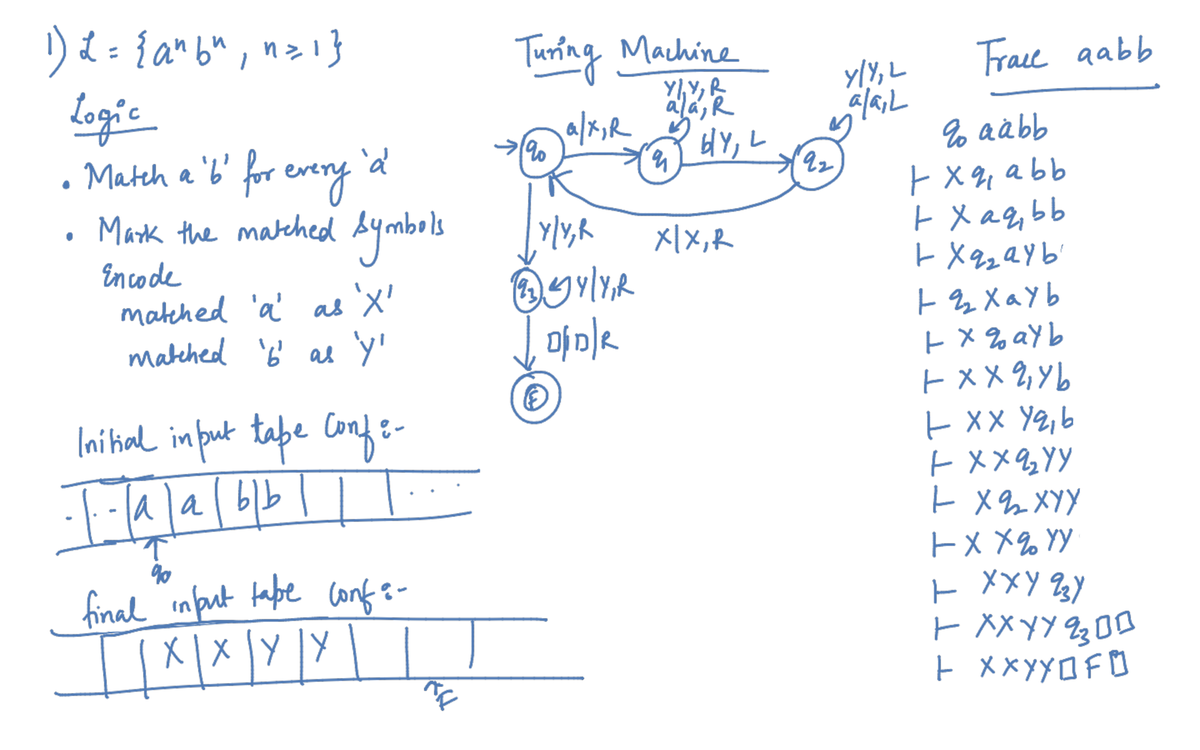 1) L = {aⁿ bⁿ, n ≥ 1}
Logic
• Match a 'b' for every 'a'
• Mark the matched symbols
Encode
matched 'a' as 'X'
matched 'b' as 'Y'
Initial input tape Conf:-
. . - a a b b . . .
q0
final input tape Conf:-
X X Y Y
F
Turing Machine
Y/Y, R
a/a, R
Y/Y, L
a/a, L
a/X, R
b/Y, L
q0 q1 q2
Y/Y, R
X/X, R
q3 Y/Y, R
□/□/R
F
Trace aabb
q0 aabb
⊢ X q1 abb
⊢ X a q1 bb
⊢ X q2 a Y b
⊢ q2 X a Y b
⊢ X q0 a Y b
⊢ X X q1 Y b
⊢ X X Y q1 b
⊢ X X q2 Y Y
⊢ X q2 X Y Y
⊢ X X q0 Y Y
⊢ X X Y q3 Y
⊢ X X Y Y q3 □ □
⊢ X X Y Y □ F □